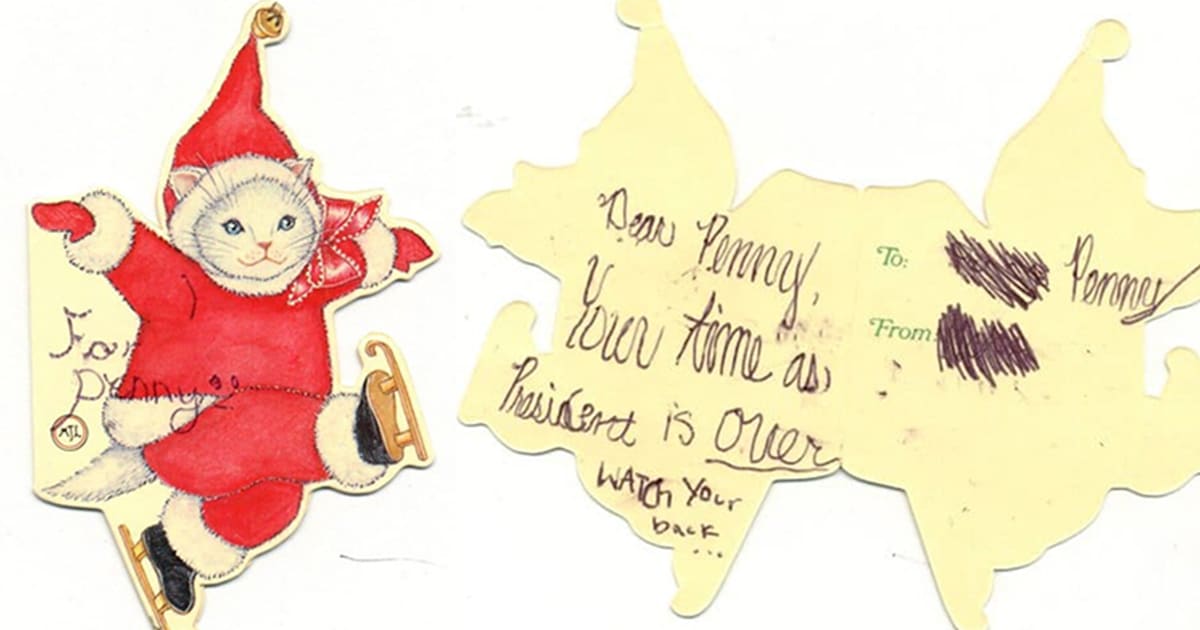 For
Penny
MJL
Dear Penny,
Your time as
President is Over
WATCH Your
back
...
To: Penny
From: